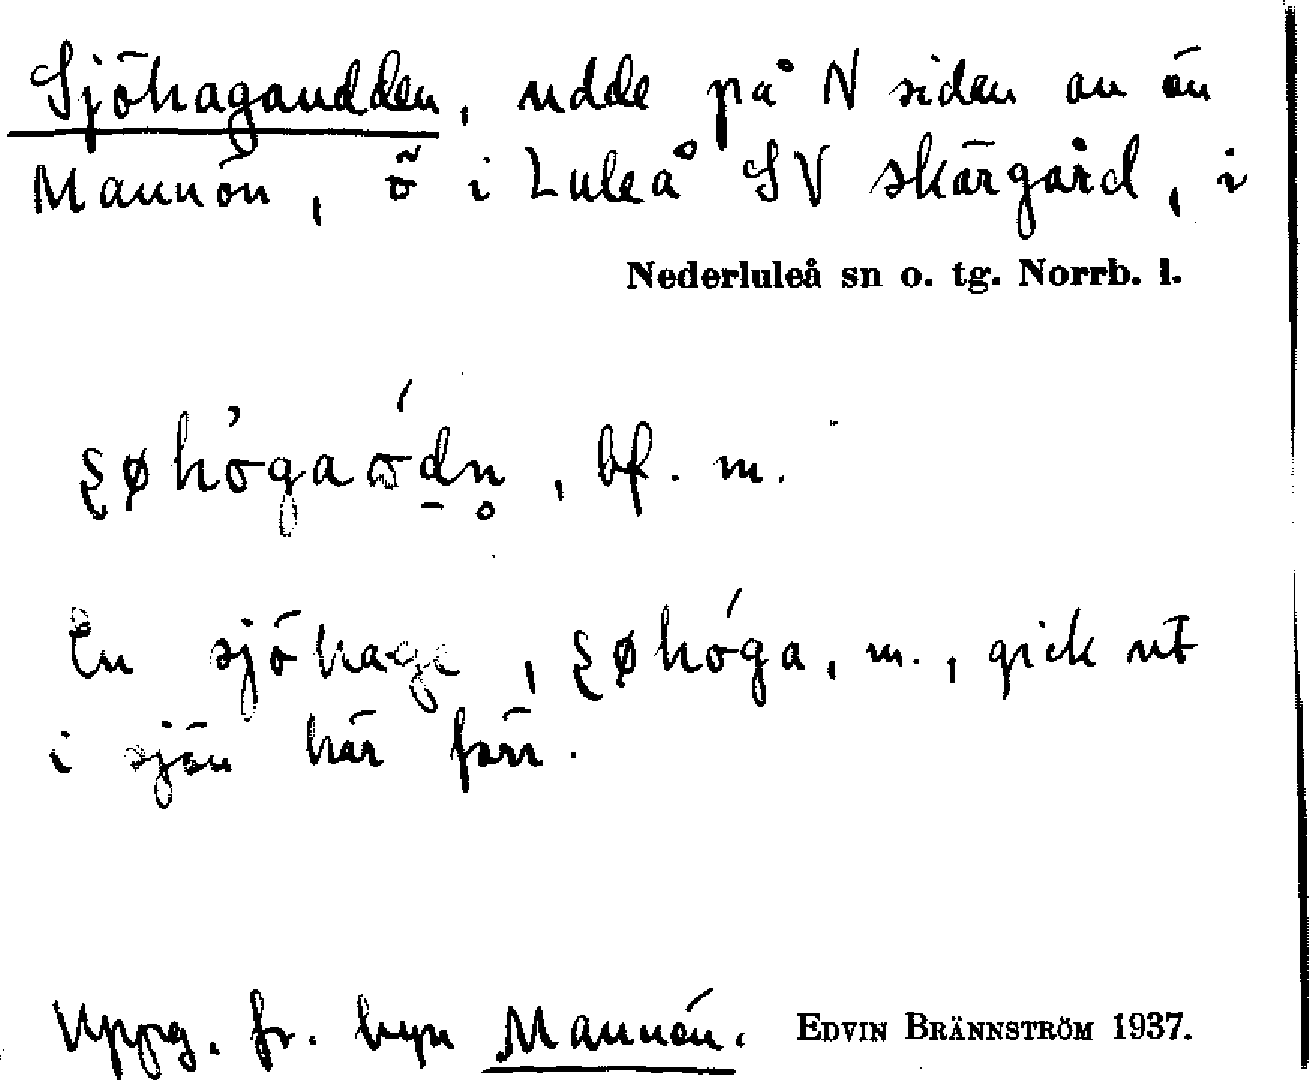 Sjöhagaudden, udde på N sidan av ön
Mannön, ö i Luleå SV skärgård, i
Nederluleå sn o. tg. Norrb. l.
bf. m.
En sjöhage, m., gick ut
i sjön här förr.
Uppg. fr. byn Mannön. EDVIN BRÄNNSTRÖM 1937.